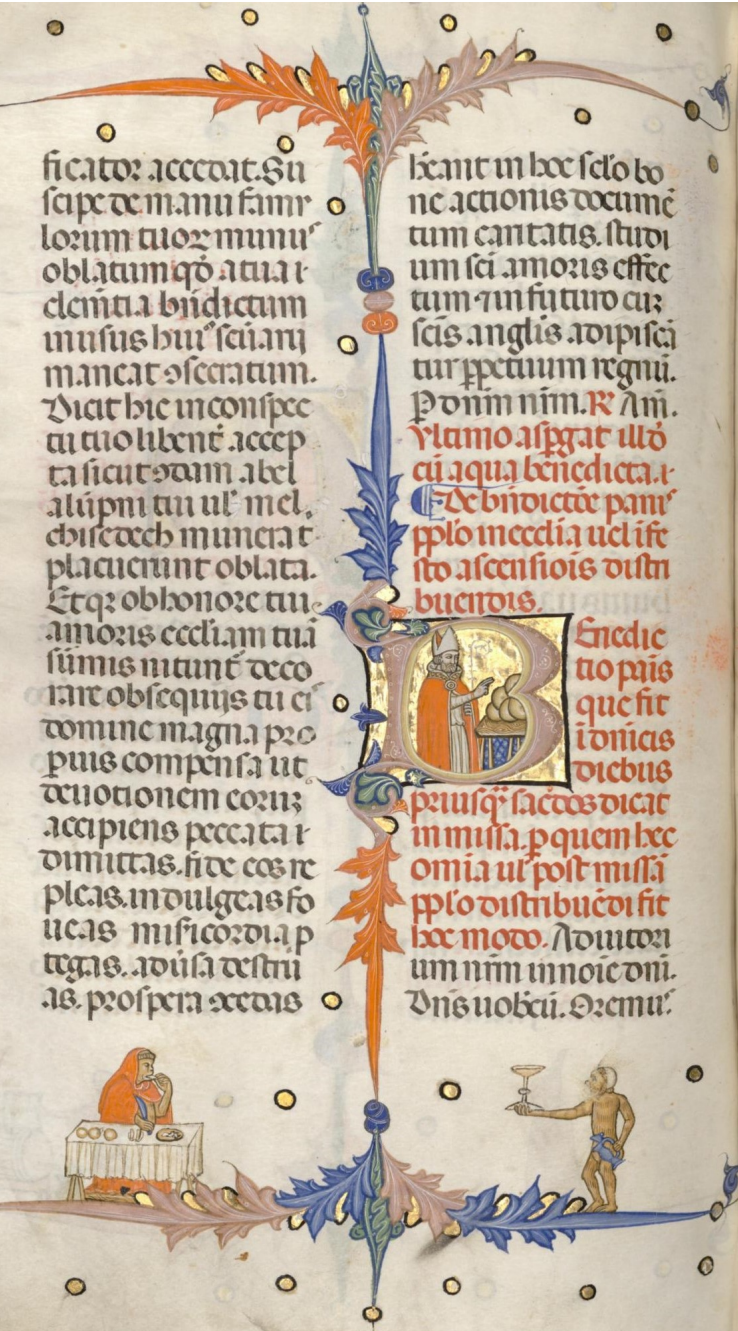 ficator accedat. Su
scipe de manu famu
lorum tuoꝝ munus
oblatum qđ a tua i
clemētia bn̄dictum
in usus hui scūarij
maneat ꝯsecratum.
Dicit hic in conspec
tu tuo libent̄ accep
ta sicut ꝯdam abel
alūpni tui ul' mel
chisedech munera t
placuerunt oblata.
Et qꝛ ob honore tui
amoris eccliam tuā
sūmis nitunt̄ deco
rare obsequijs tu eis
domine magna pro
pius compensa ut
deuotionem eorum
accipiens peccata i
dimittas. fide eos re
pleas. indulgeas fo
ueas misericordia p
tegas. aduīsa destru
as. prospera ꝯcedas
hēant in hoc sclō bo
ne actionis documē
tum caritatis. studi
um sc̄i amoris effec
tum ⁊ in futuro cū
sc̄is anglis adipiscā
tur ꝑpetuum regnū.
P donm nrm. ℞ Am̄.
Vltimo aspgat illos
cū aqua benedicta. i
De bn̄dictōe panis
pplo in ecclia uel i fe
sto ascensiōis distri
buendis.
Benedic
tio panis
que fit
ī dnicis
diebus
priusqȝ sac̄dos dicat
in missa. p quem hec
omīa ul' post missā
pplo distribuēdi fit
hoc modo. Adiutori
um nrm in noīe dn̄i.
Dn̄s uobcū. Oremus.